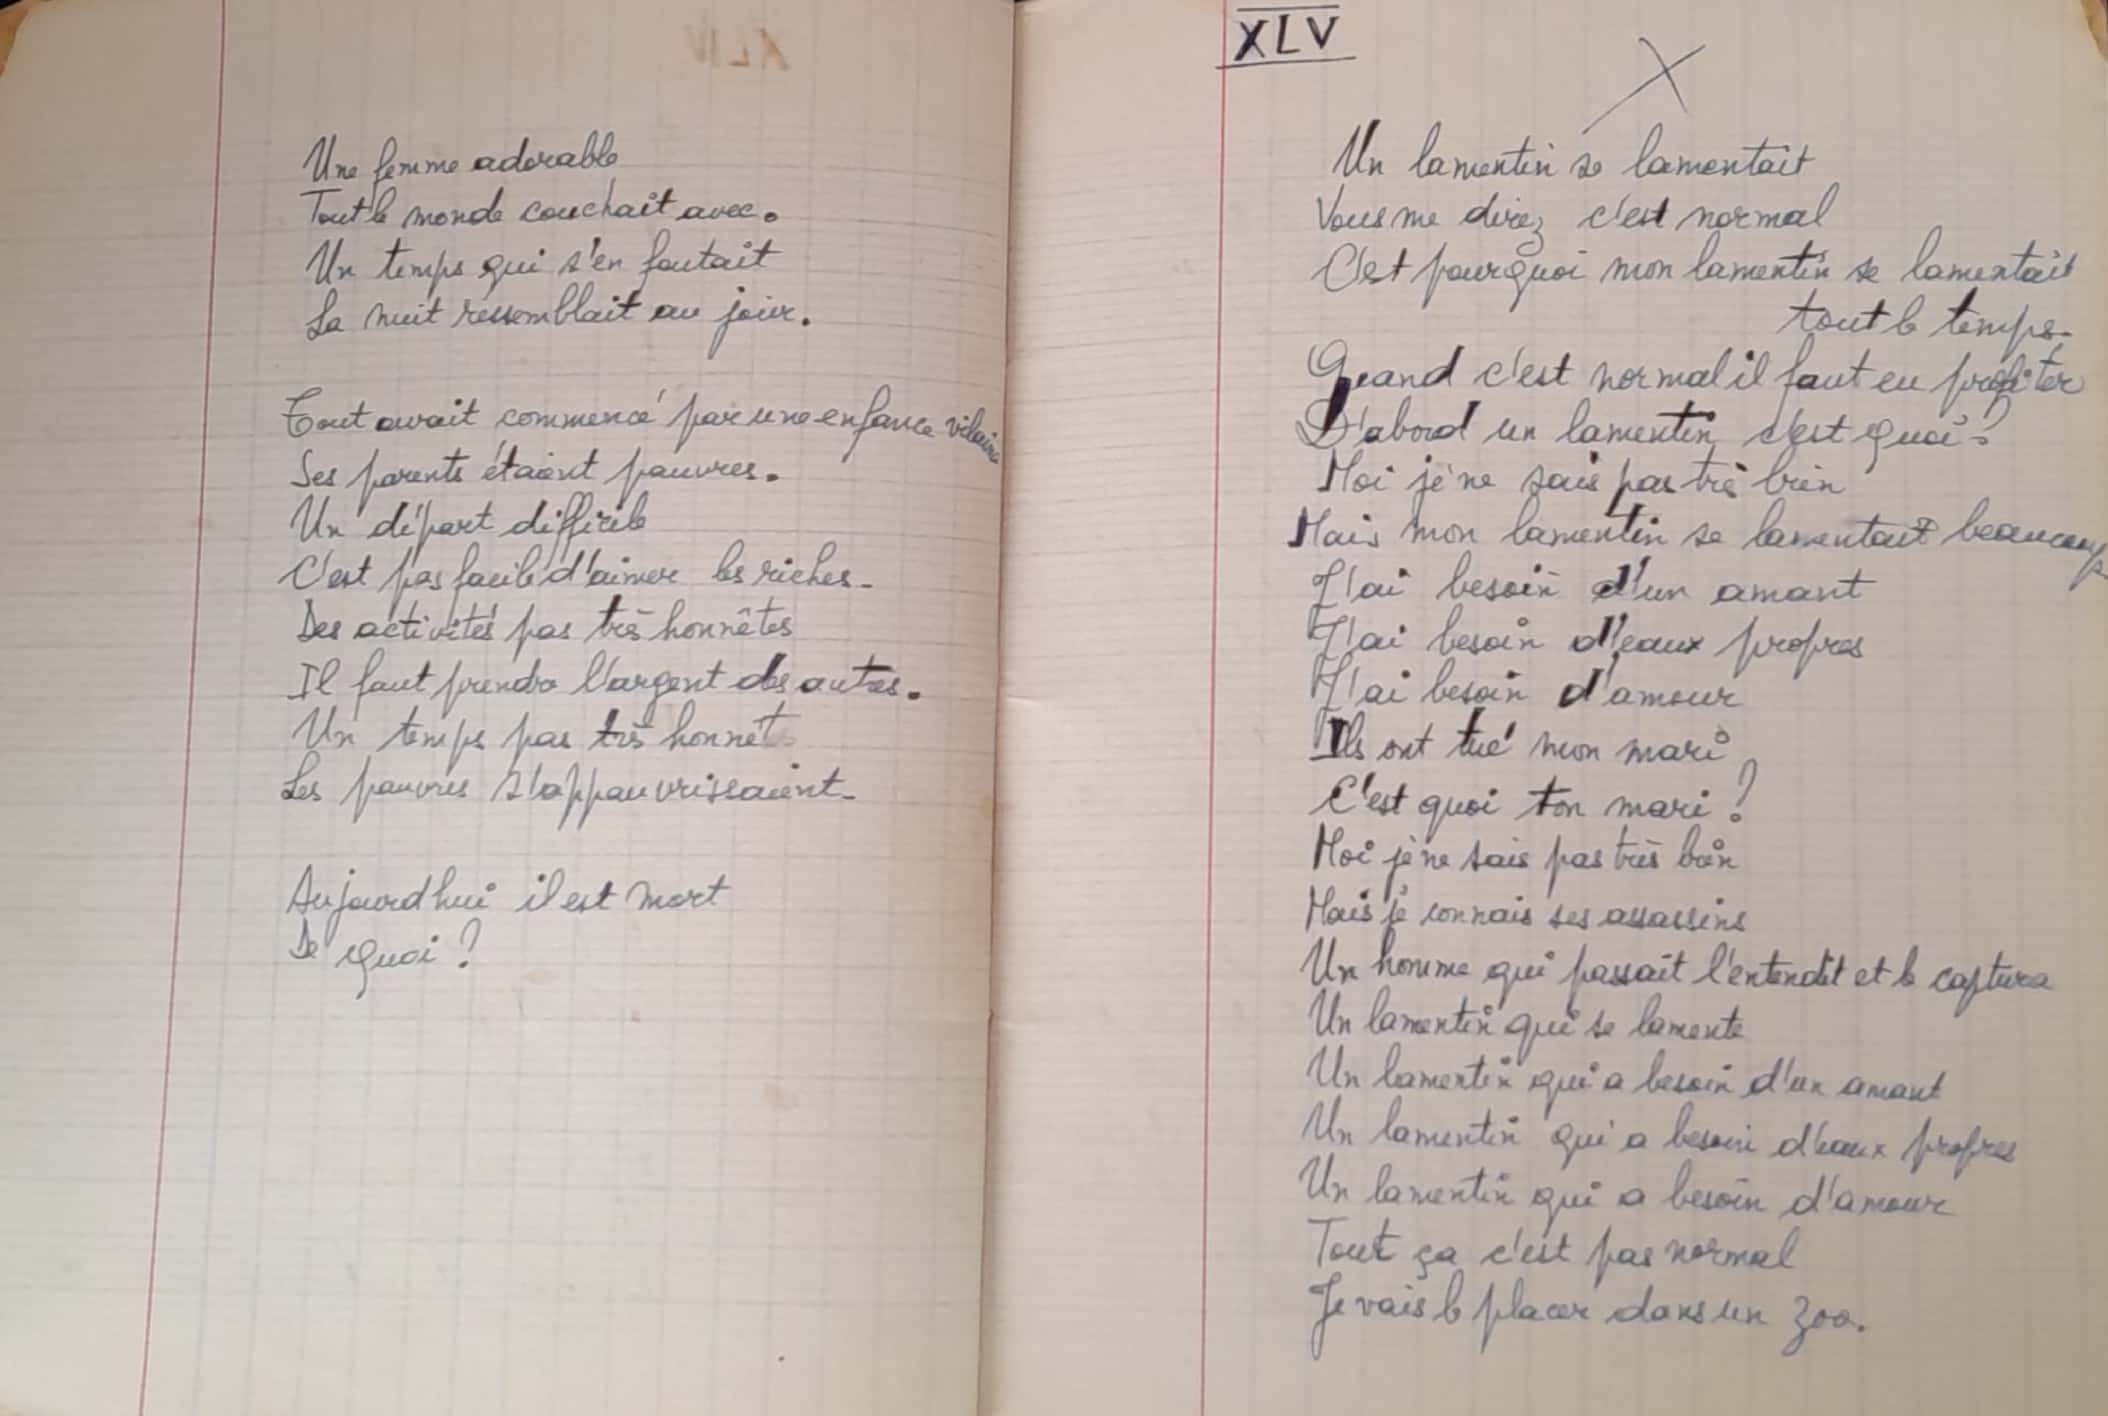 Une femme adorable
Tout le monde couchait avec.
Un temps qui s'en foutait
La nuit ressemblait au jour.
Tout avait commencé par une enfance vilaine
Ses parents étaient pauvres.
Un départ difficile
C'est pas facile d'aimer les riches.
Des activités pas très honnêtes
Il faut prendre l'argent des autres.
Un temps pas très honnête
Les pauvres s'appauvrissaient.
Aujourd'hui il est mort
De quoi ?
XLV
X
Un lamentin se lamentait
Vous me direz c'est normal
C'est pourquoi mon lamentin se lamentait
tout le temps.
Quand c'est normal il faut en profiter
D'abord un lamentin c'est quoi ?
Moi je ne sais pas très bien
Mais mon lamentin se lamentait beaucoup
J'ai besoin d'un amant
J'ai besoin d'eaux propres
J'ai besoin d'amour
Ils ont tué mon mari
C'est quoi ton mari ?
Moi je ne sais pas très bien
Mais je connais ses assassins
Un homme qui passait l'entendit et le captura
Un lamentin qui se lamente
Un lamentin qui a besoin d'un amant
Un lamentin qui a besoin d'eaux propres
Un lamentin qui a besoin d'amour
Tout ça c'est pas normal
Je vais le placer dans un zoo.